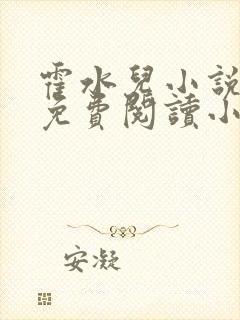 霍水兒小說
免費閱讀小
安凝